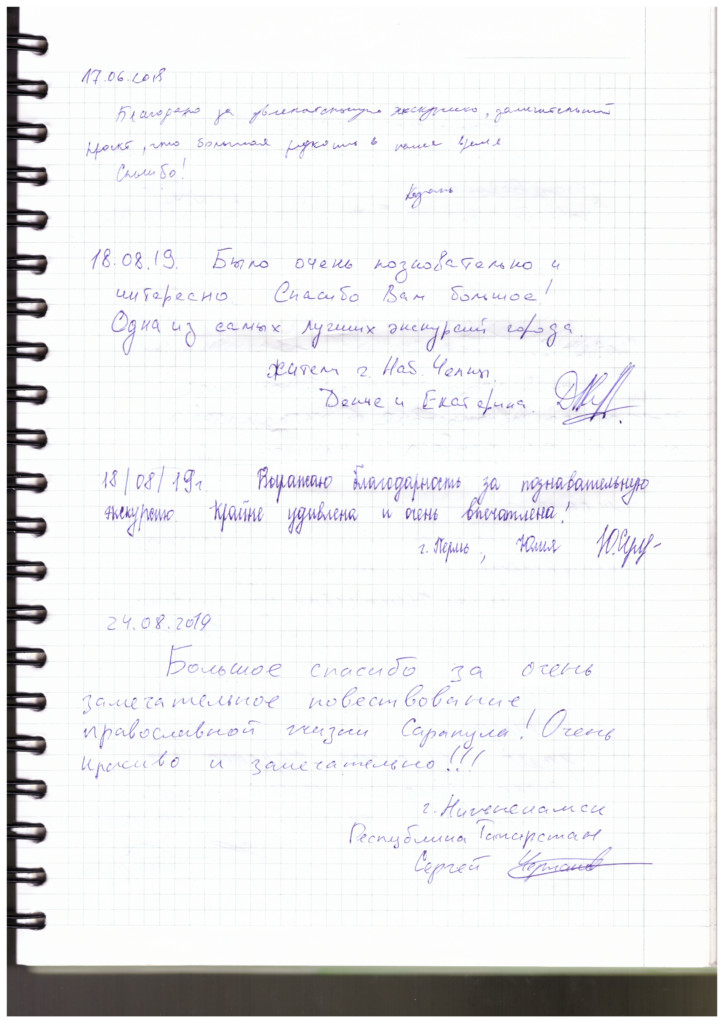 17.06.2018
Благодарю за увлекательную экскурсию, замечательный
проект, что большая редкость в наше время
Спасибо!
Казань
18.08.19. Было очень позновательно и
интересно Спасибо Вам большое!
Одна из самых лучших экскурсий города.
жители г. Наб Челны.
и Екатерина.
18/08/19г. Выражаю благодарность за познавательную
экскурсию. Крайне удивлена и очень впечатлена!
г. Пермь, Юлия
24.08.2019
Большое спасибо за очень
замечательное повествование
православной жизни Сарапула! Очень
красиво и замечательно!!!
г. Нижнекамск
Республика Татарстан
Сергей